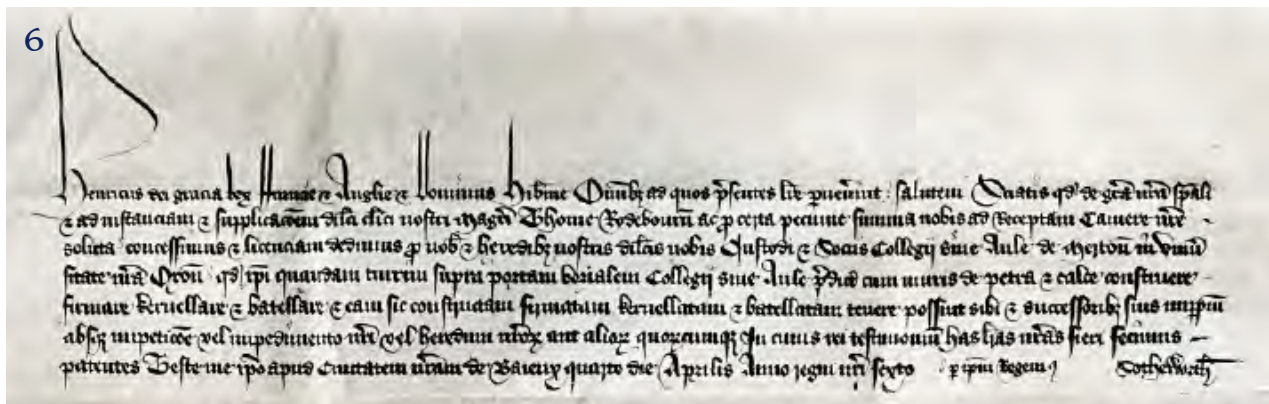 6
Henricus dei gracia Rex Francie & Anglie & Dominus Hibnie Omibz ad quos psentes lre puenint salutem Sciatis qd de gra nra spali
& ad instanciam & supplicacoem dilci clici nostri Magri Thome Rodebourn ac p certa pecunie summa nobis ad Receptam Camere nre
soluta concessimus & licenciam dedimus p nob & heredibz nostris dilcis nobis Custodi & Sociis Collegii siue Aule de Merton in Vniu
sitate nra Oxon qd ipi quandam turrim supra portam borialem Collegii siue Aule pdice cum muris de petra & calce construere
firmare kernellare & batellare & eam sic constructam firmatam kernellatam & batellatam tenere possint sibi & successoribz suis imppm
absqz impeticoe vel impedimento nri vel heredum nroz aut alioz quorcumqz In cuius rei testimonium has lras nras fieri fecimus
patentes Teste me ipo apud Ciuitatem nram de Baieux quarto die Aprilis Anno regni nri sexto p ipm Regem